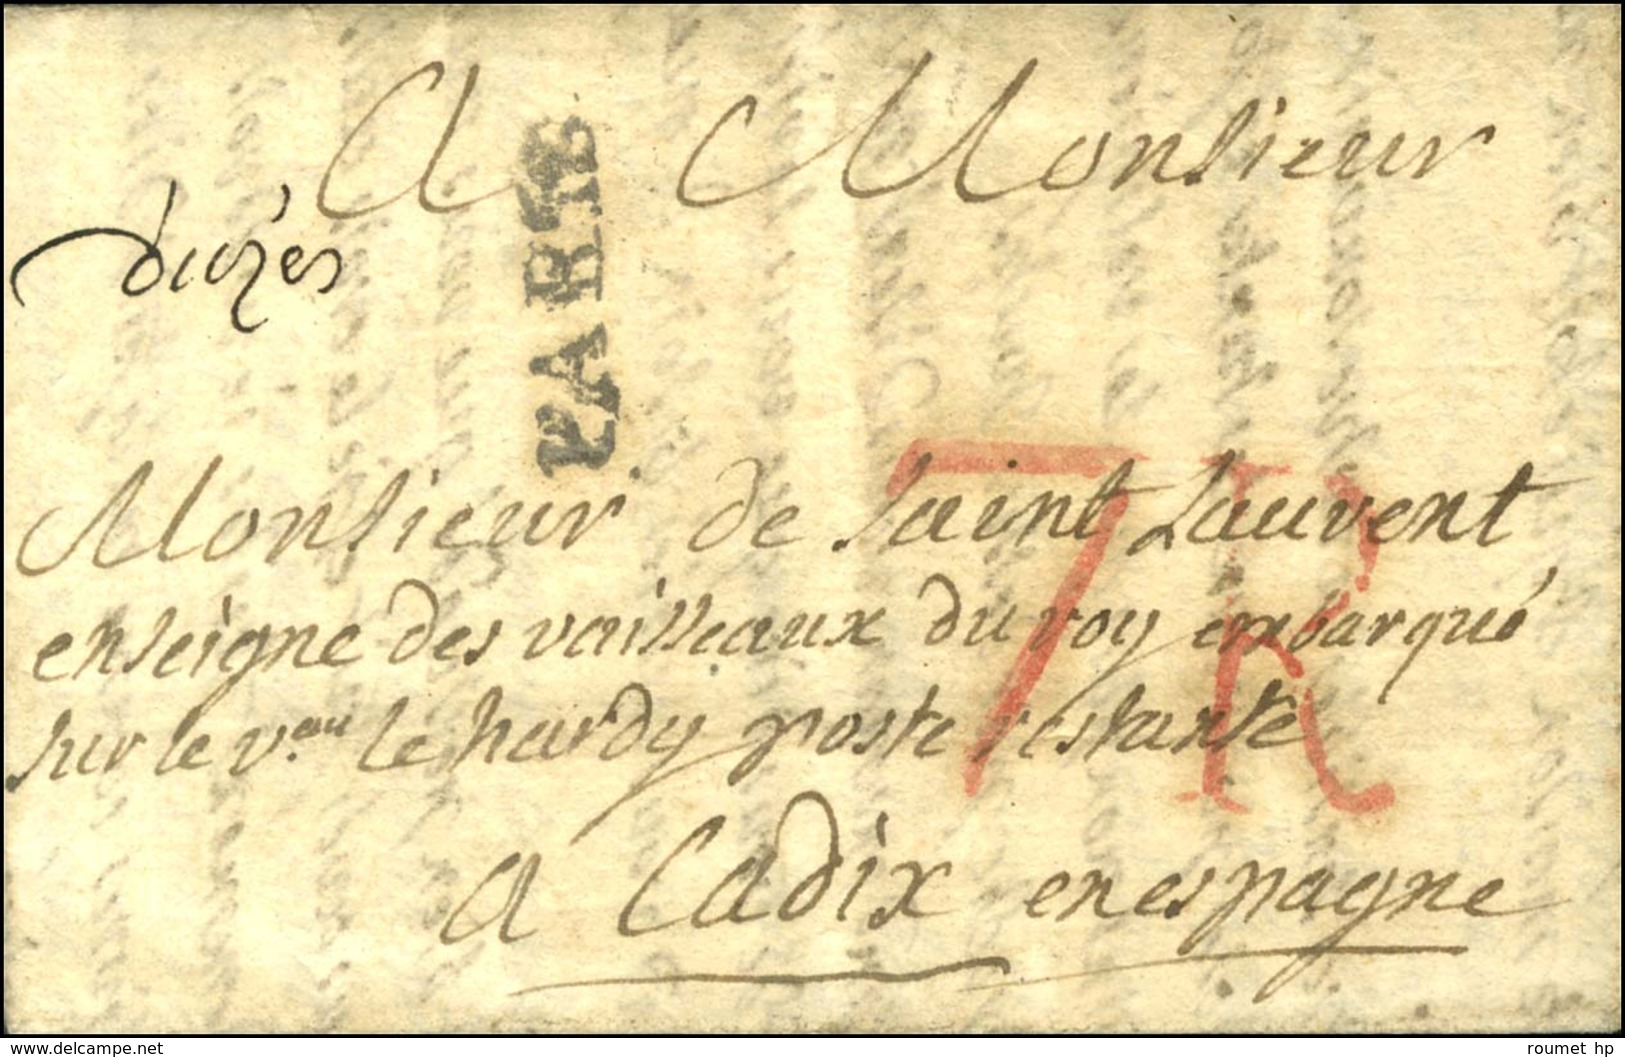 A Monsieur
duzés
PARIS
Monsieur de saint Laurent
enseigne des vaisseaux du roy embarqué
sur le v.au le hardy poste restante
7R
a Cadix en espagne
www.delcampe.net
roumet hp